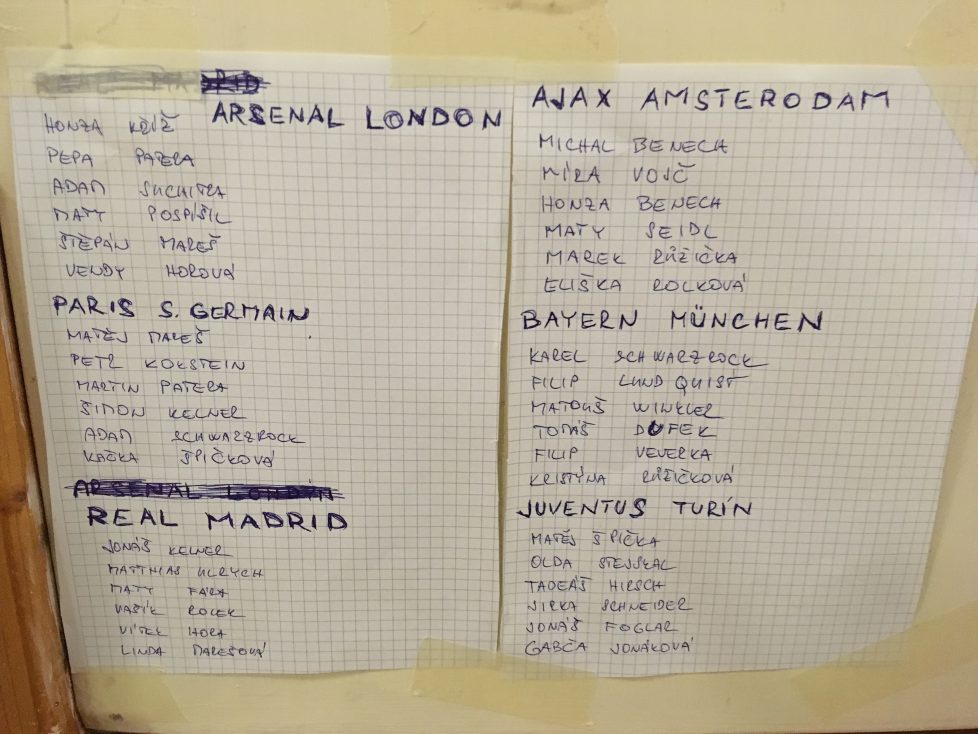 ARSENAL LONDON
HONZA KŘÍŽ
PEPA PATERA
ADAM SUCHITRA
MATY POSPÍŠIL
ŠTĚPÁN MAREŠ
VENDY HOROVÁ
PARIS S. GERMAIN
MATĚJ MAREŠ
PETR KOKSTEIN
MARTIN PATERA
ŠIMON KELNER
ADAM SCHWARZROCK
KAČKA ŠPIČKOVÁ
ARSENAL LONDÝN
REAL MADRID
JONÁŠ KELNER
MATTHIAS ULRYCH
MATY FÁRA
VAŠÍK ROLEK
VÍTEK HORA
LINDA MAREŠOVÁ
AJAX AMSTERODAM
MICHAL BENECH
MÍRA VOJČ
HONZA BENECH
MAŤY SEIDL
MAREK RŮŽIČKA
ELIŠKA ROLKOVÁ
BAYERN MÜNCHEN
KAREL SCHWARZROCK
FILIP LUNDQUIST
MATOUŠ WINKLER
TOMÁŠ DUFEK
FILIP VEVERKA
KRISTÝNA RŮŽIČKOVÁ
JUVENTUS TURÍN
MATĚJ ŠPIČKA
OLDA STEJSKAL
TADEÁŠ HIRSCH
JIRKA SCHNEIDER
JONÁŠ FOGLAR
GABČA JONÁKOVÁ